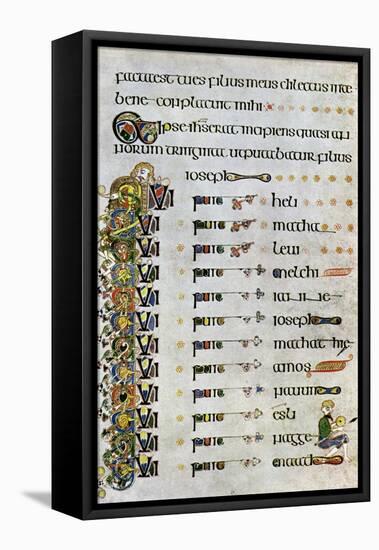 facta est tu es filius meus dilectus in te
bene conplacuit mihi
Et ipse ihs erat incipiens quasi an
norum triginta ut putabatur filius
ioseph
QUI fuit heli
QUI fuit matha
QUI fuit levi
QUI fuit melchi
QUI fuit iannae
QUI fuit ioseph
QUI fuit mathathie
QUI fuit amos
QUI fuit nauum
QUI fuit esli
QUI fuit nagge
QUI fuit